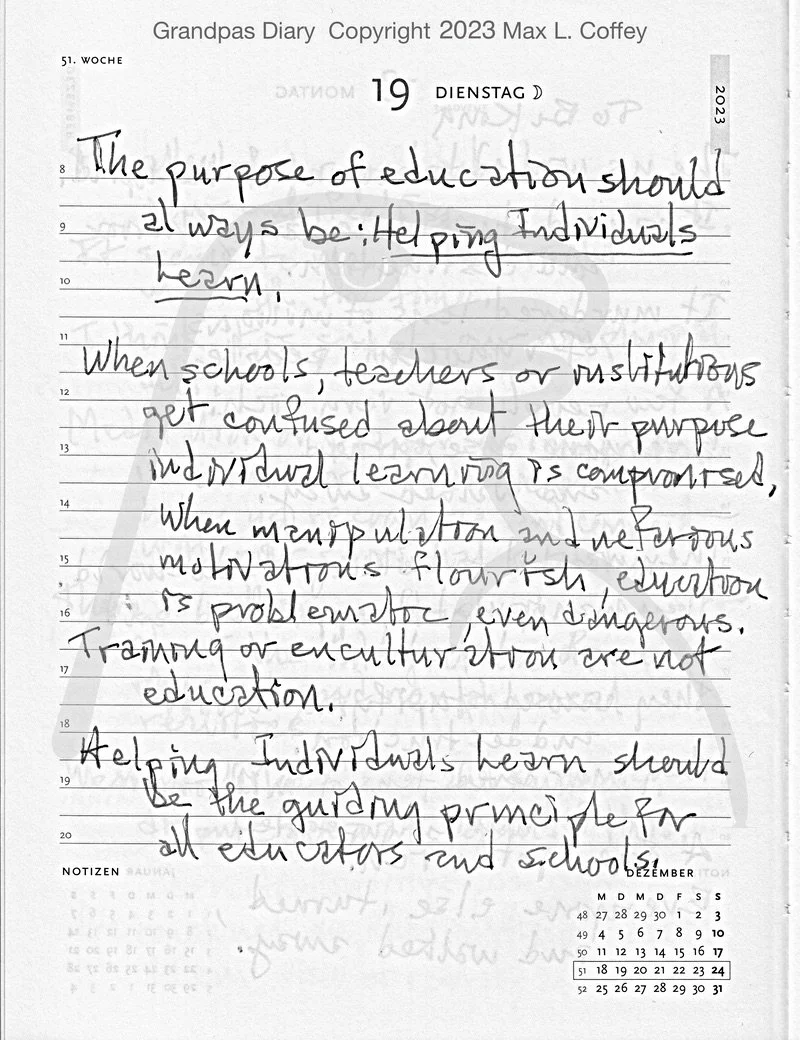 Grandpas Diary Copyright 2023 Max L. Coffey
51. WOCHE
19 DIENSTAG
2023
8 The purpose of education should
9 always be: Helping Individuals
10 Learn.
11
When schools, teachers or institutions
12 get confused about their purpose
13 individual learning is compromised,
14 When manipulation and nefarious
15 motivations flourish, education
16 is problematic, even dangerous.
Training or enculturation are not
17 education.
18
Helping Individuals Learn should
19 be the guiding principle for
20 all educators and schools.
NOTIZEN
DEZEMBER
M D M D F S S
48 27 28 29 30 1 2 3
49 4 5 6 7 8 9 10
50 11 12 13 14 15 16 17
51 18 19 20 21 22 23 24
52 25 26 27 28 29 30 31